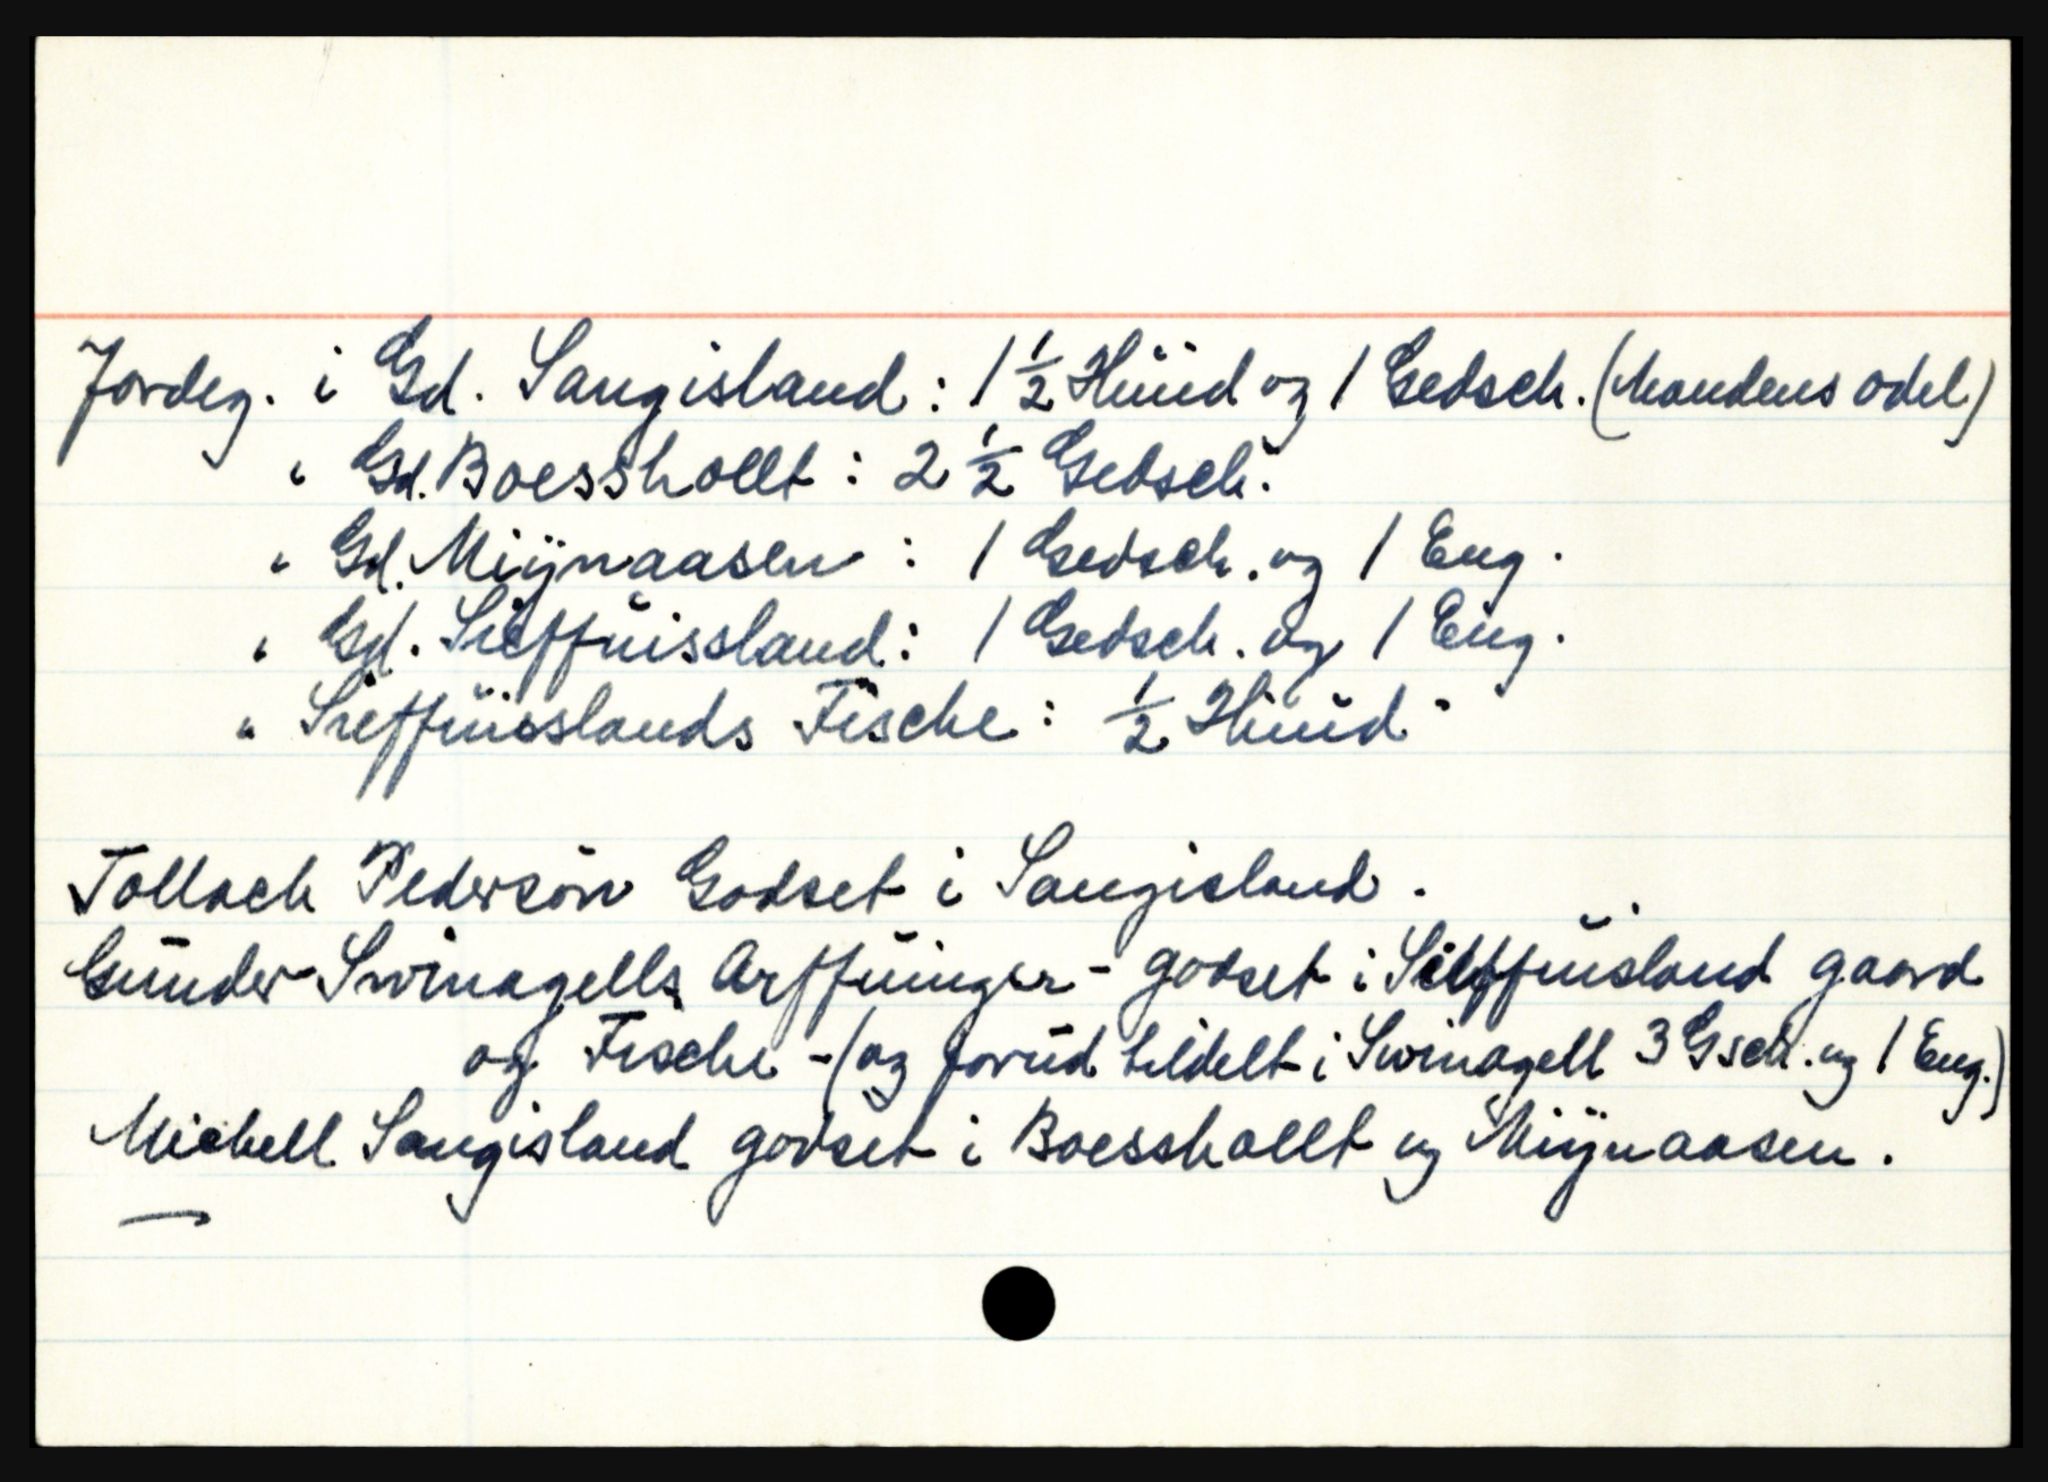 Jordeg. i Gd. Sangisland: 1 1/2 Hüüd og 1 Gedsch. (Mandens odel)
" Gd. Boesshollt: 2 1/2 Gedsch.
" Gd. Miÿnaasen: 1 Gedsch. og 1 Eng.
" Gd. Sieffüissland: 1 Gedsch. og 1 Eng.
" Sieffüisslands Fische: 1/2 Hüüd
Tollach Pedersön Godset i Sangisland.
Günder Swinagells Arffüinger - godset i gaard
og Fische - (og forüd tildelt i Swinagell 3 Gsch. og 1 Eng.)
Michell Sangisland godset i Boesshollt og Miÿnaasen.